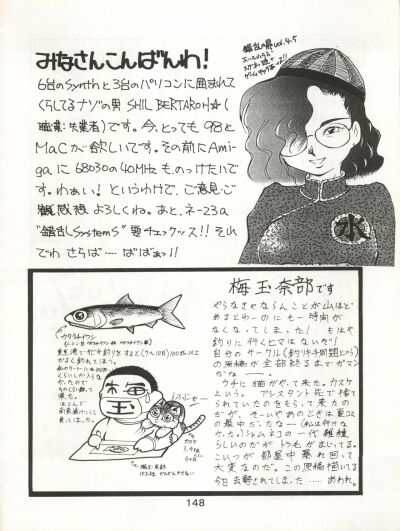 みなさんこんばんわ!
6台のSynthと3台のパソコンに囲まれて
くらしてるナゾの男 SHIL BERTAROH☆(
職業:失業者)です。今、とっても98と
MaCが欲しいです。その前にAmi-
gaに68030の40MHzものっけたいで
す。わぁい! というわけで、ご意見・ご
感想 よろしくね。あと、ネ-23a
"錯乱SystemS" 要チェックッス!! それ
でわ さらば‥‥ ばばぁっ!!
錯乱の扉 vol.4.5
水
梅玉奈部です
やらなきゃならんことが山ほど
あるとゆーのにも一時間が
なくなってしまった! もはや
釣りに行くヒマはないぞ!
自分のサークル(釣りキチ同盟とゆう)
の原稿が全部終るまでガマン
だな
ウチに猫がやって来た。カスケ
という。アシスタント先で捨て
られていたのをもらって来たの
だが、そーいやあのときは夏コミ
の最中だったなー(私は行けな
かった。)シャムネコの一代雑種
らしいのだがトラ毛がまじってる。
こいつが部屋中暴れ回って
大変なのだ。この原稿描いてる
今日去勢されてしまった……あわれ。
カタクチイワシ
東京湾で
100匹以上
かるく釣れてしまう。
梅玉
ふにゃー
カスケ
梅玉・奈部
148